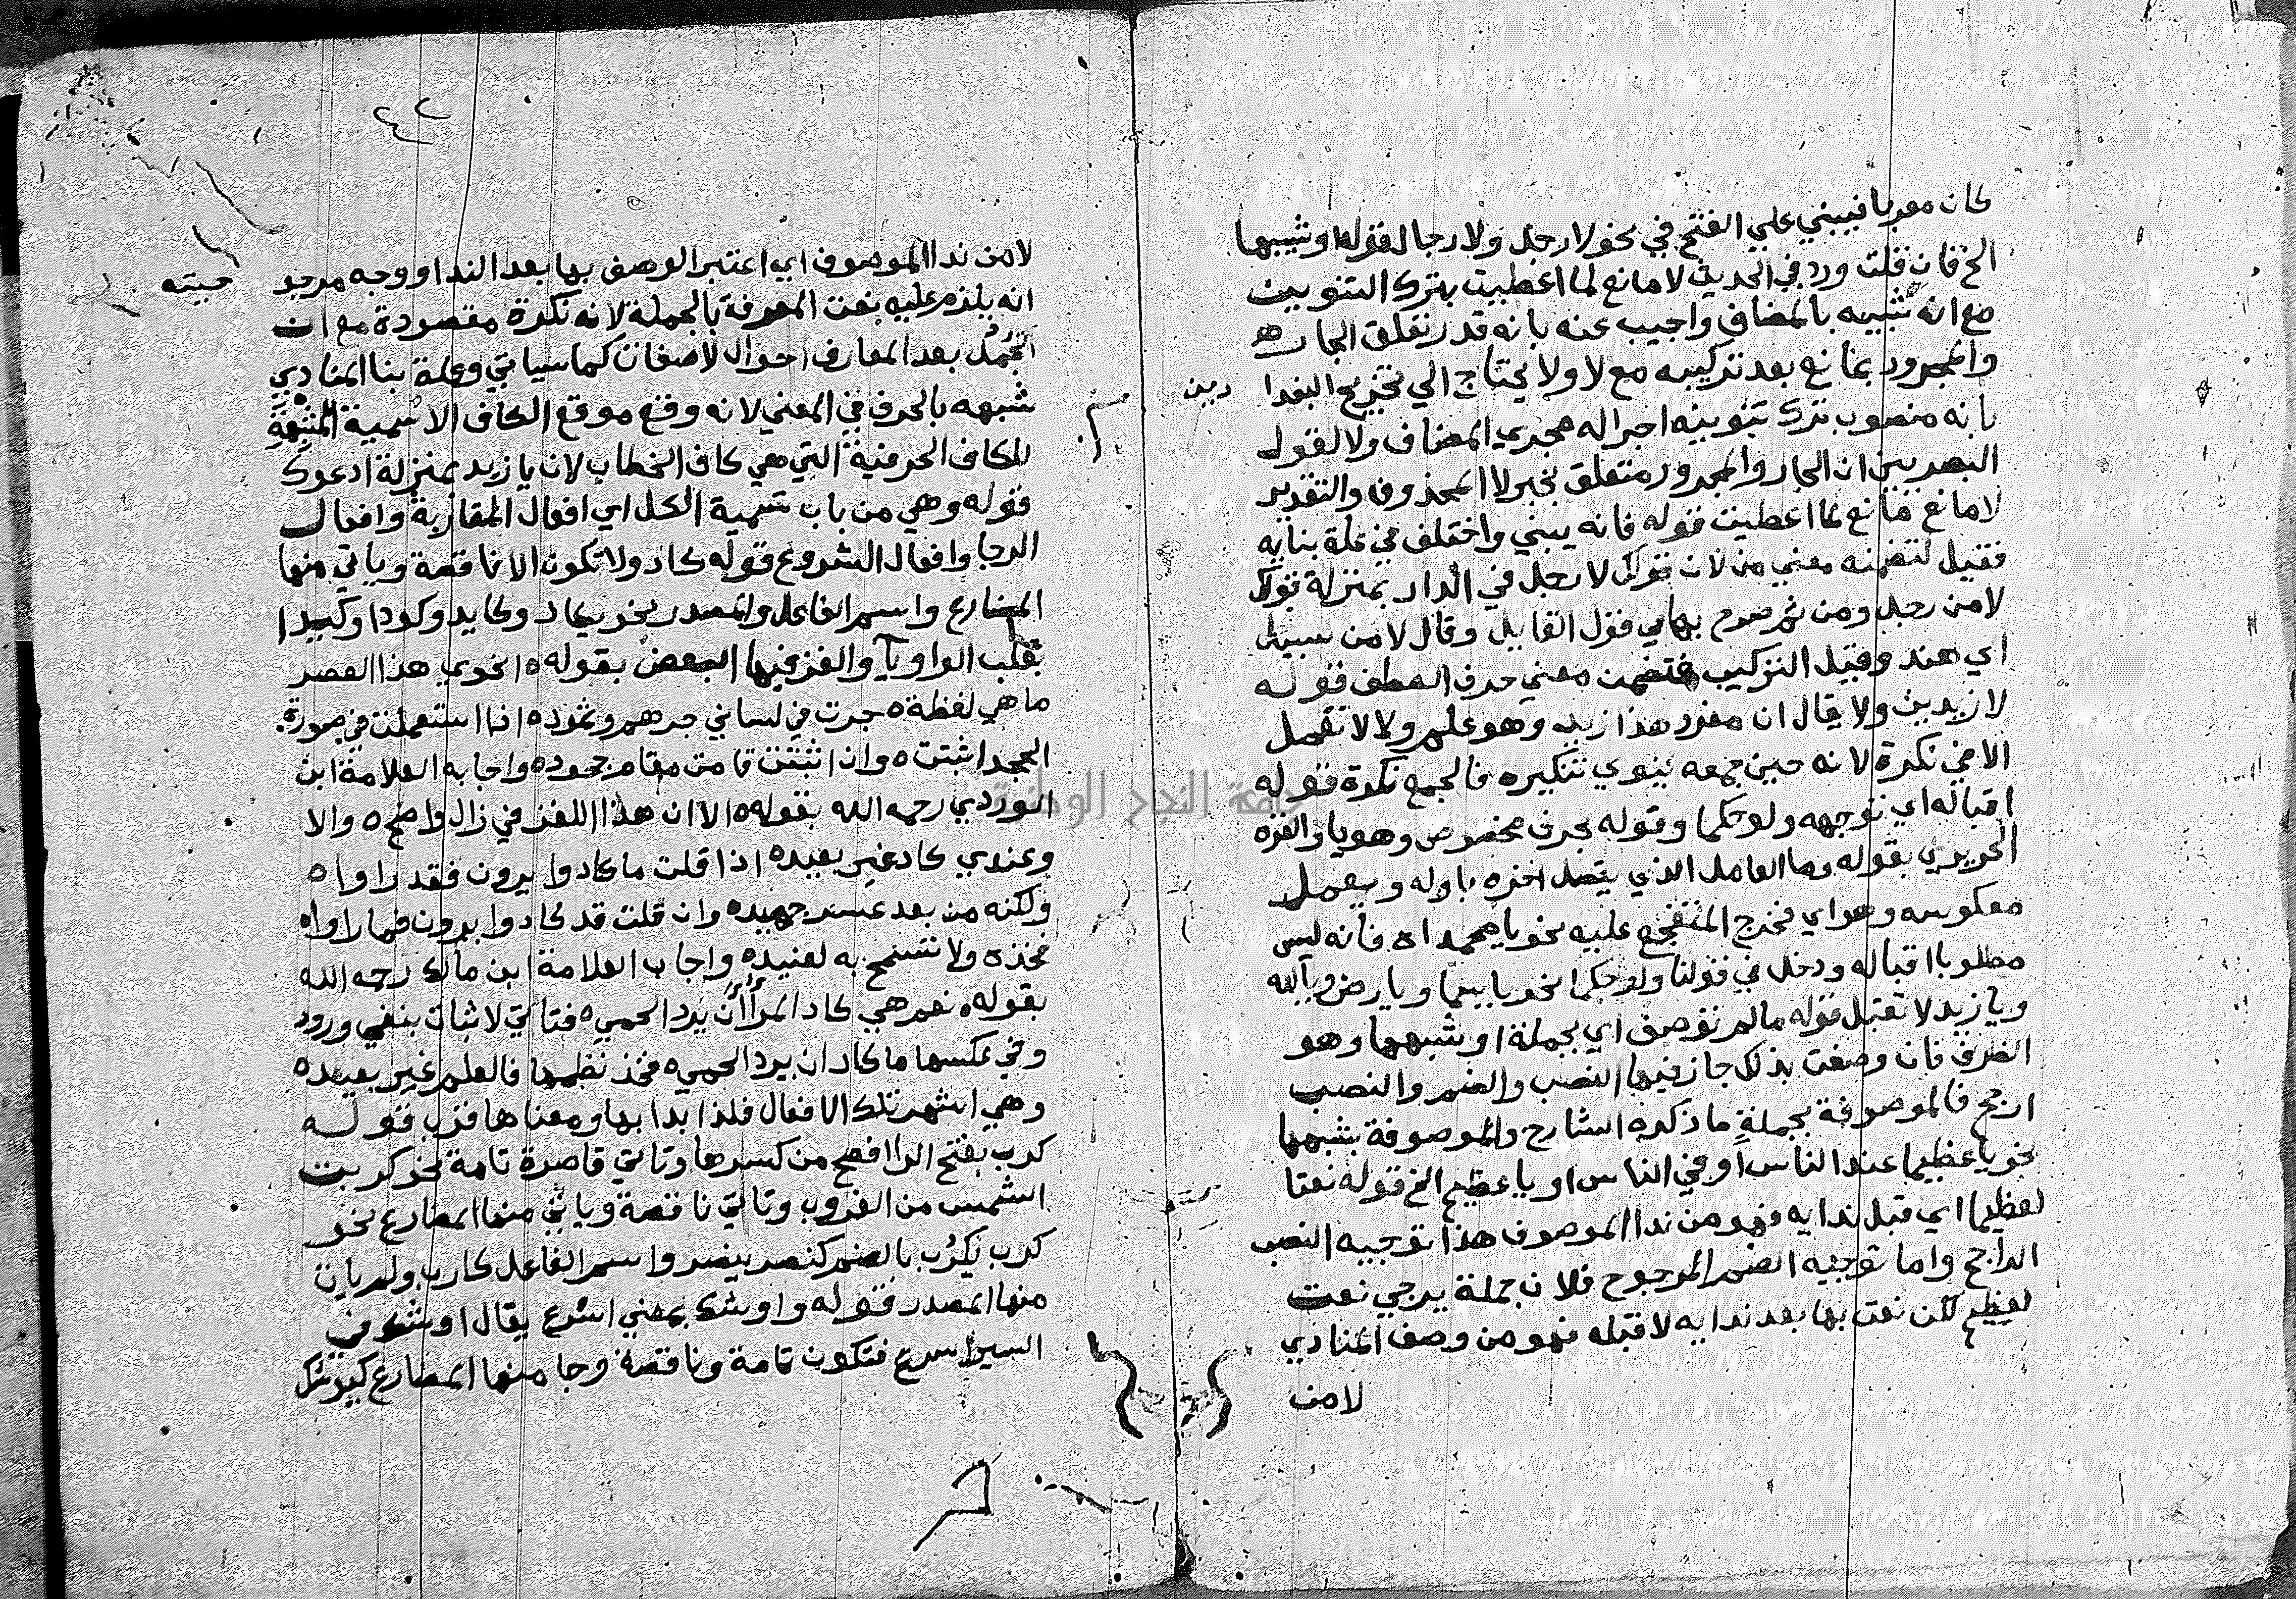 كان معربا فيبني علي الفتح في نحو لا رجل ولا رجال قوله او شبهها
الخ فان قلت ورد في الحديث لا مانع لما اعطيت بترك التنوين
مع انه شبيه بالمضاف واجيب عنه بانه قدر تعلق الجار
والمجرور بمانع بعد تركيبه مع لا ولا يحتاج الي تخريج البغدا ديين
بانه منصوب بترك تنوينه اجرا له مجري المضاف ولا لقول
البصريين ان الجار والمجرور متعلق بخبر لا المحذوف والتقدير
لا مانع مانع لما اعطيت قوله فانه يبني واختلف في علة بنايه
فقيل لتضمنه معني من لان قولك لا رجل في الدار بمنزلة قولك
لا من رجل ومن ثم صرح بها في قول القايل وقال لا من سبيل
اي هند وقيل التركيب فتضمن معني حرف العطف قوله
لا زيدين ولا يقال ان مفرد هذا زيد وهو علم ولا لا تعمل
الا في نكرة لانه حين جمعه ينوي تنكيره فالجمع نكرة قوله
اقباله اي توجهه ولو حكما وقوله بحرف مخصوص وهو يا والغزه
الحريري بقوله وما العامل الذي يتصل اخره باوله ويعمل
معكوسه وهو اي مخرج المتفجع عليه نحو يا محمداه فانه ليس
مطلوبا اقباله ودخل في قولنا ولو حكما نحو يا سما ويا رض ويا لله
ويا زيد لا تقبل قوله ما لم توصف اي بجملة او شبهها وهو
الظرف فان وصفت بذلك جاز فيها النصب والضم والنصب
ارجح فالموصوفة بجملة ما ذكره الشارح والموصوفة بشبهها
نحو يا عظيما عند الناس او في الناس او يا عظيم الخ قوله نعتا
لعظيما اي قبل ندايه فهو من ندا الموصوف هذا توجيه النصب
الراجح واما توجيه الضم المرجوح فلان جملة يرجي نعت
لعظيم لكن نعت بها بعد ندايه لا قبله فهو من وصف المنادي
لا من
٤٢
لا من ندا الموصوف اي اعتبر الوصف بها بعد الندا ووجه مرجو حيته
انه يلزم عليه نعت المعرفة بالجملة لانه نكرة مقصودة مع ان
الجُمل بعد المعارف احوال لا صفات كما سياتي وعلة بنا المنادي
شبهه بالحرف في المعني لانه وقع موقع الكاف الاسمية المشبهة
للكاف الحرفية التي هي كاف الخطاب لان يا زيد بمنزلة ادعوك
قوله وهي من باب تسمية الكل اي افعال المقاربة وافعال
الرجا وافعال الشروع قوله كاد ولا تكون الا ناقصة وياتي منها
المضارع واسم الفاعل والمصدر نحو يكاد وكايد وكودا وكيدا
بقلب الواو يآ والغز فيها البعض بقوله ه انحوي هذا العصر
ما هي لفظة ه جرت في لساني جرهم وثمود ه اذا استعملت في صورة
الجحد اثبتت ه وان اثبتت قامت مقام جحود ه واجابه العلامة ابن
الوردي رحمه الله بقوله ه الا ان هذا اللغز في زال واضح ه والا
وعندي كاد غير بعيد ه اذا قلت ما كادوا يرون فقد راوا ه
ولكنه من بعد عسر جهيد ه وان قلت قد كادوا يرون فما راوا ه
فخذه ولا تسمح به لعنيد ه واجاب العلامة ابن مالك رحمه الله
بقوله ه نعم هي كاد المرأ أن يَرد الحمي ه فتاتي لاثبات بنفي ورود
وفي عكسها ما كاد ان يرد الحمي ه فخذ نظمها فالعلم غير بعيد ه
وهي اشهر تلك الافعال فلذا بدا بها ومعناها قرب قوله
كرب بفتح الرا افصح من كسرها وتاتي قاصرة تامة نحو كربت
الشمس من الغروب وتاتي ناقصة وياتي منها المضارع نحو
كرب يكرُب بالضم كنصر ينصر واسم الفاعل كارب ولم يات
منها المصدر قوله واوشك بمعني اسرع يقال اوشك في
السير اسرع فتكون تامة وناقصة وجا منها المضارع كيوشك
جامعة النجاح الوطنية